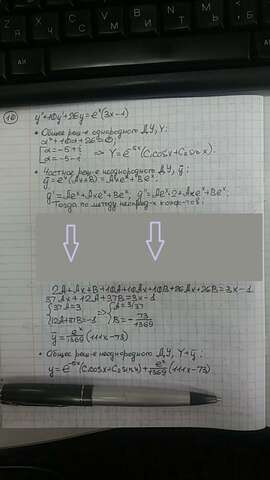 (10) y''+10y'+26y=eˣ(3x-1)
• Общее реш-е однородного ДУ, Y:
α²+10α+26=0,
[α=-5+i
[α=-5-i ⇒ Y=e⁻⁵ˣ(C₁cosx+C₂sinx).
• Частное реш-е неоднородного ДУ, ȳ:
ȳ=eˣ(Ax+B)=Axeˣ+Beˣ.
ȳ'=Aeˣ+Axeˣ+Beˣ, ȳ''=Aeˣ·2+Axeˣ+Beˣ.
Тогда по методу неопред-х коэф-тов:
2A+Ax+B+10A+10Ax+10B+26Ax+26B=3x-1
37Ax+12A+37B=3x-1
{37A=3
{12A+37B=-1 ⇒ {A=3/37
{B=-73/1369
ȳ=eˣ/1369(111x-73)
• Общее реш-е неоднородного ДУ, Y+ȳ:
y=e⁻⁵ˣ(C₁cosx+C₂sinx)+eˣ/1369(111x-73)